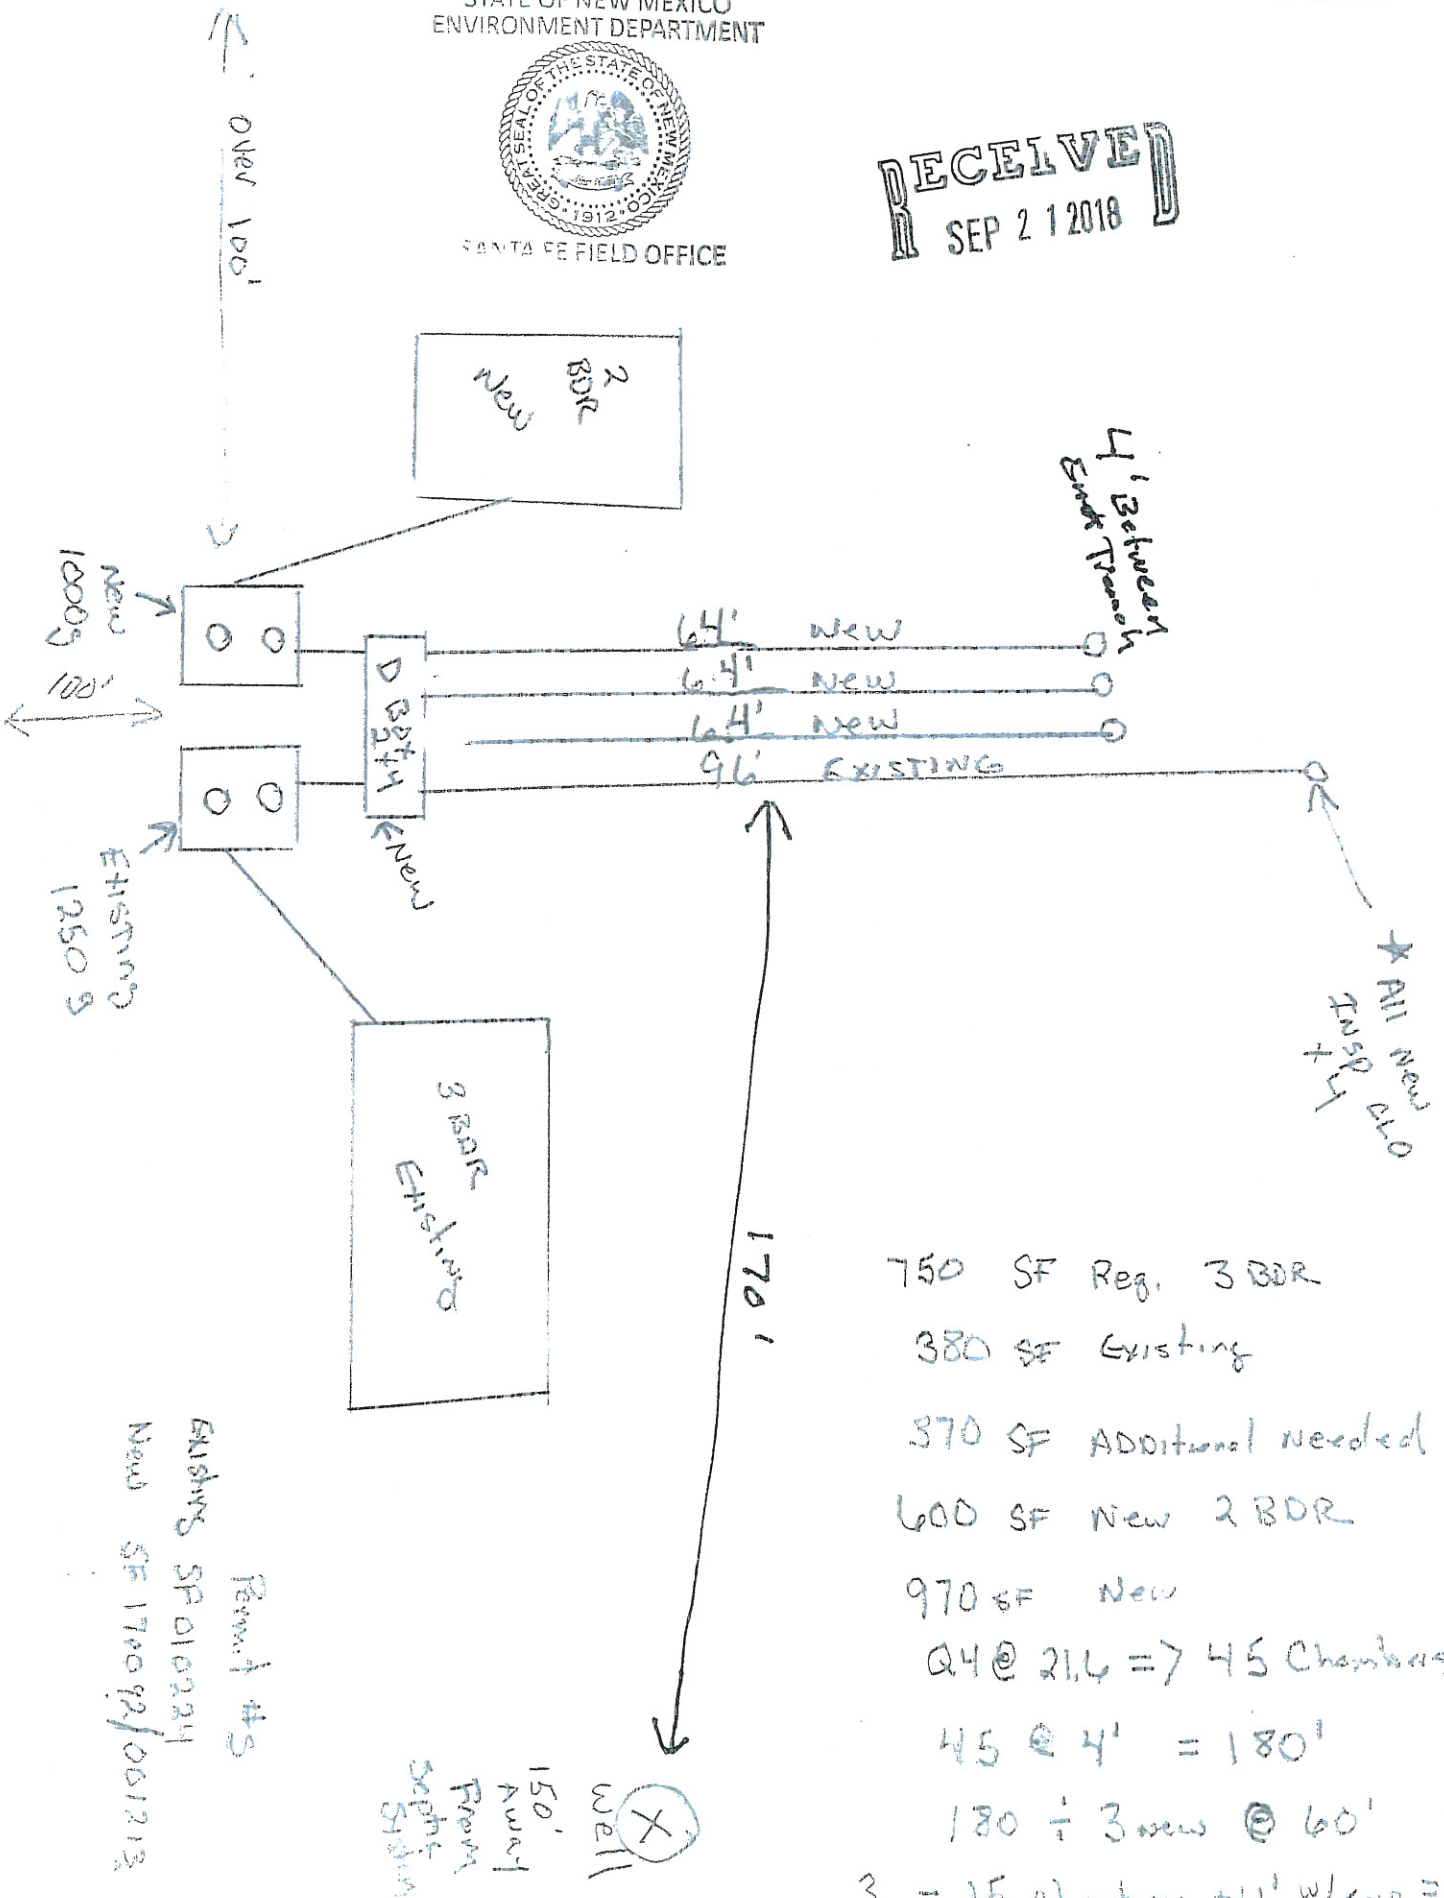 STATE OF NEW MEXICO
ENVIRONMENT DEPARTMENT
GREAT SEAL OF THE STATE OF NEW MEXICO
1912
SANTA FE FIELD OFFICE
RECEIVED
SEP 21 2018
over 100'
2
BDR
New
4' Between
Trench
New
1000g
100'
64' New
64' New
64' New
96' EXISTING
D Box
2+4
New
Existing
1250 g
* All New
INSP CLO
x 4
3 BDR
Existing
170'
750 SF Req. 3 BDR
380 SF Existing
370 SF ADDitional Needed
600 SF New 2 BDR
970 SF New
Q4 @ 21.6 => 45 Chambers
45 @ 4' = 180'
180 ÷ 3 new @ 60'
3 = 15
Permit #s
Existing SF010224
New SF170092/001213
X
Well
150'
Away
From
Septic
System